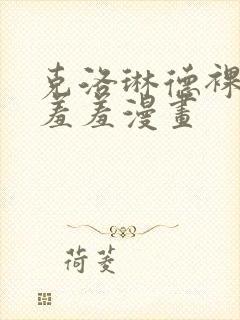 克洛琳德裸
羞羞漫畫
荷菱